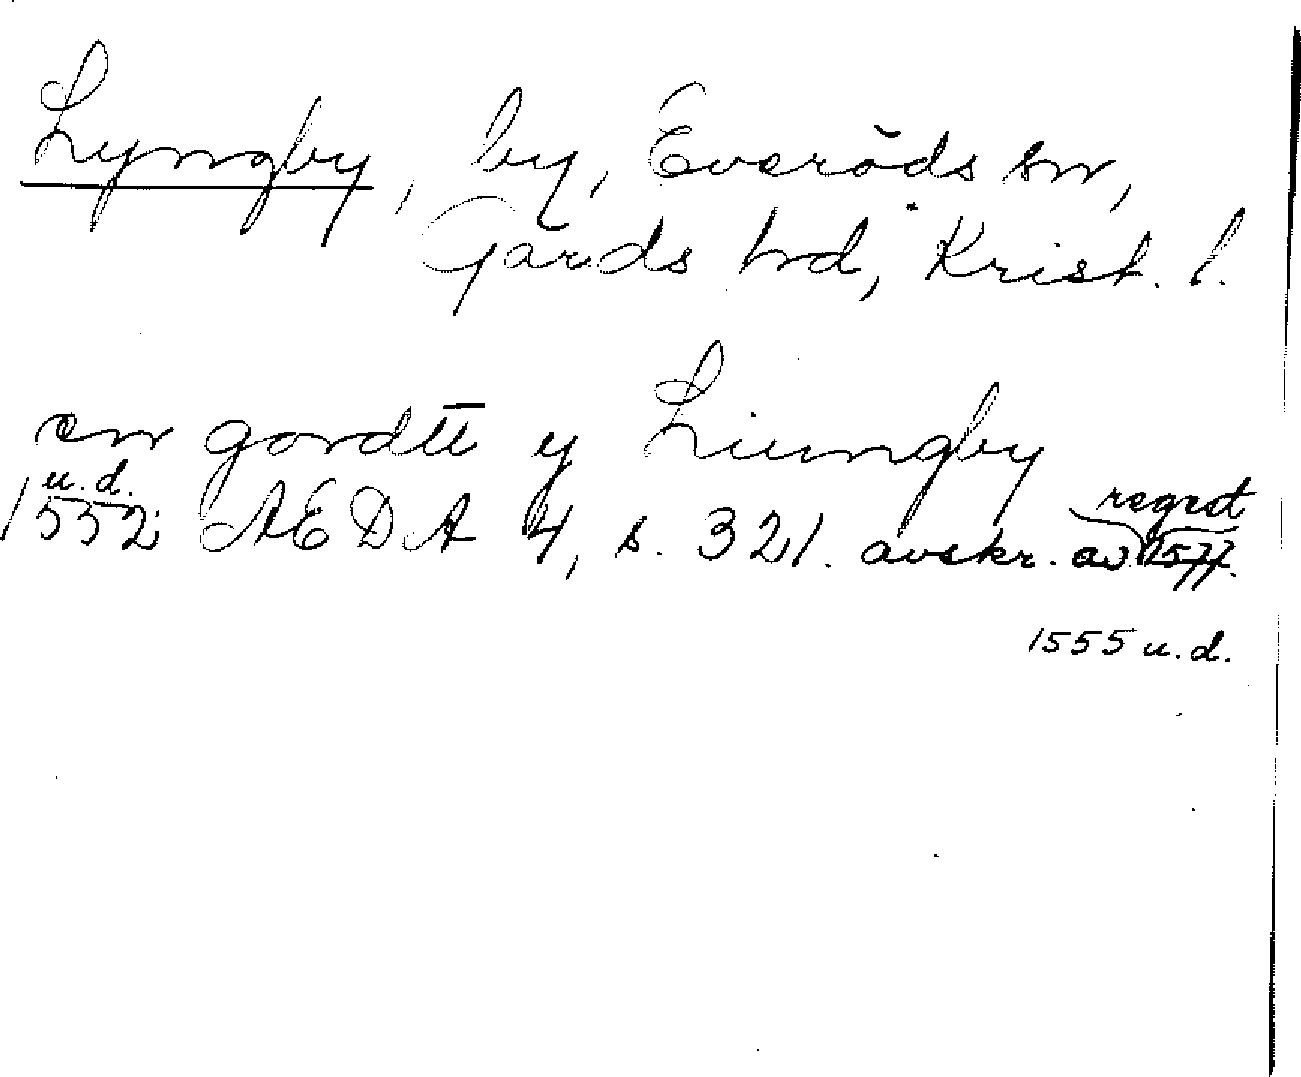 Lyngby, by, Everöds sn,
Gärds hrd, Krist. l.
en gordtt y Liungby
u.d. regest
1552 AEDA 4, s. 321. avskr. av 1577.
1555 u.d.